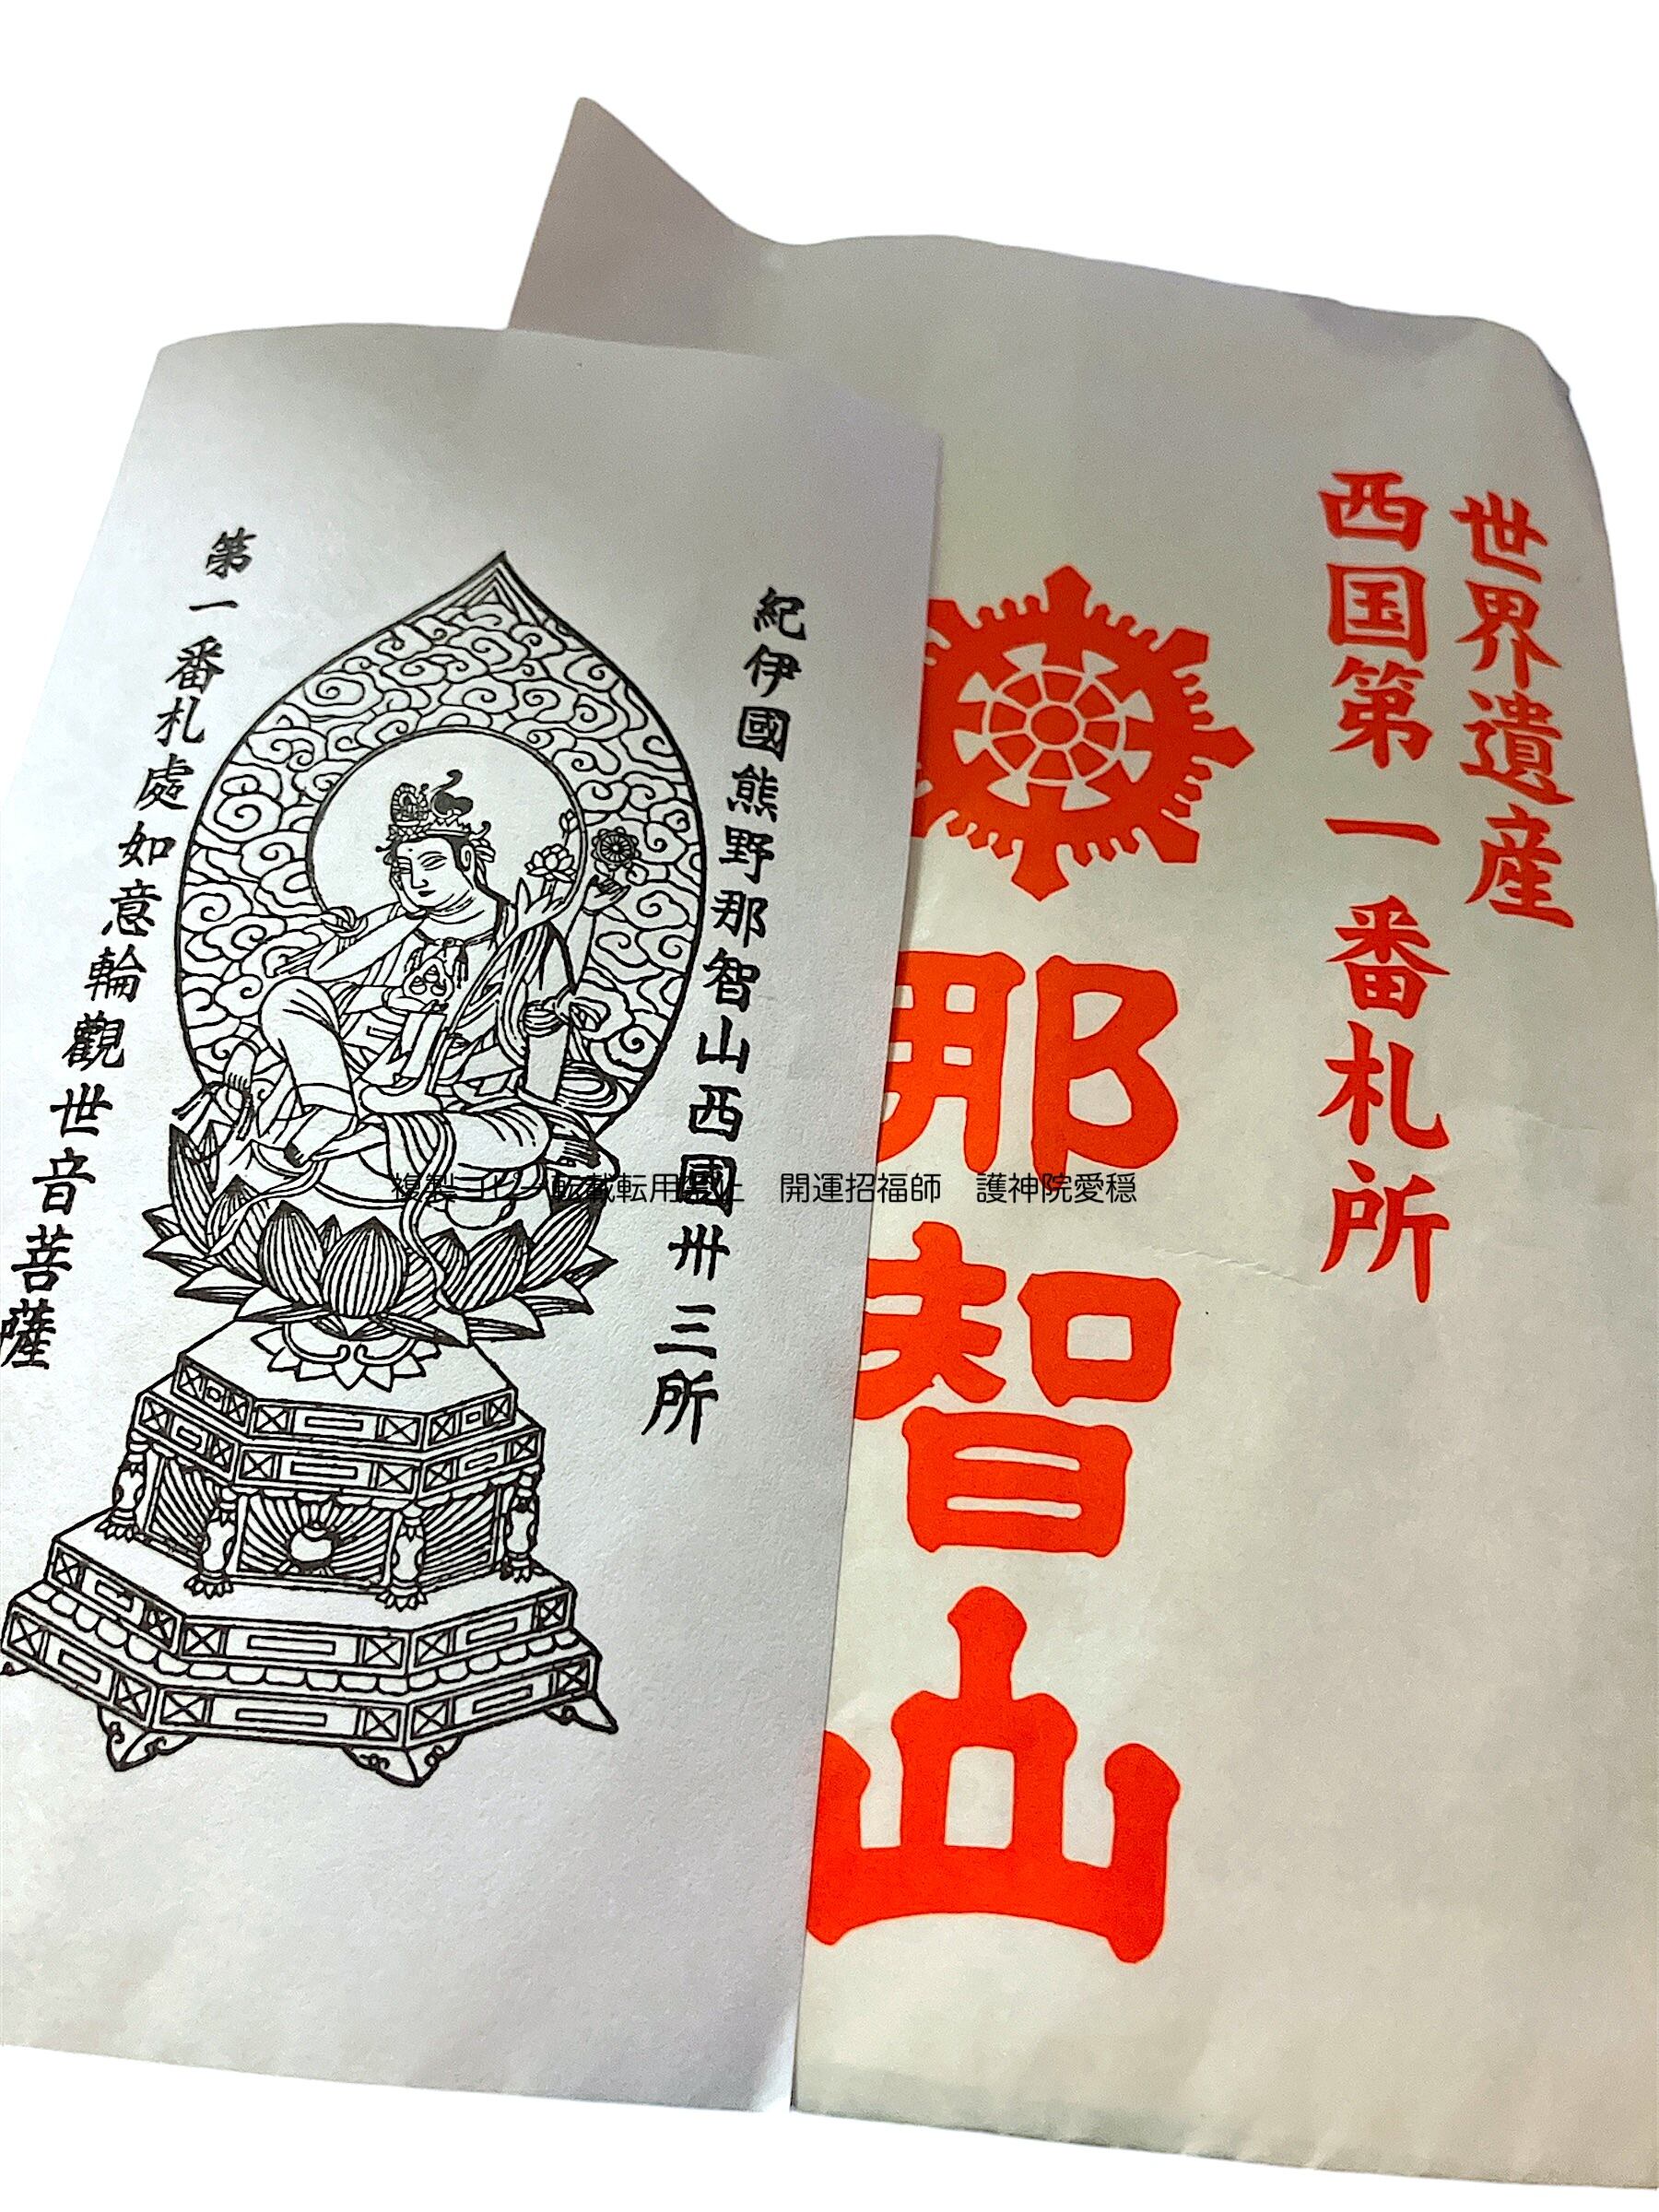 世界遺産
西国第一番札所
那智山
紀伊國熊野那智山西國卅三所
第一番札處如意輪觀世音菩薩
複製コピー転載転用禁止 開運招福師 護神院愛穏